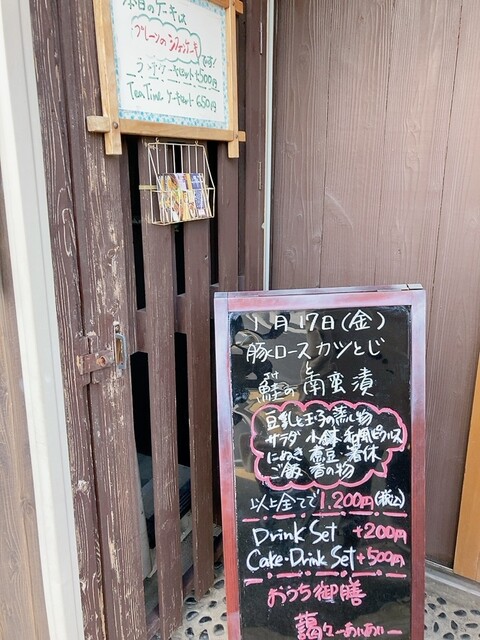 本日のケーキは
プレーンのシフォンケーキ
です!
ケーキセット +500円
Tea Time ケーキセット 650円
1月17日(金)
豚ロースカツとじ
と
鮭の南蛮漬
豆乳と玉子の蒸し物
サラダ 小鉢 和風ピクルス
煮豆 箸休
ご飯 香の物
以上全てで1,200円(税込)
Drink Set +200円
Cake・Drink Set +500円
おうち御膳
藹々ーあいあいー